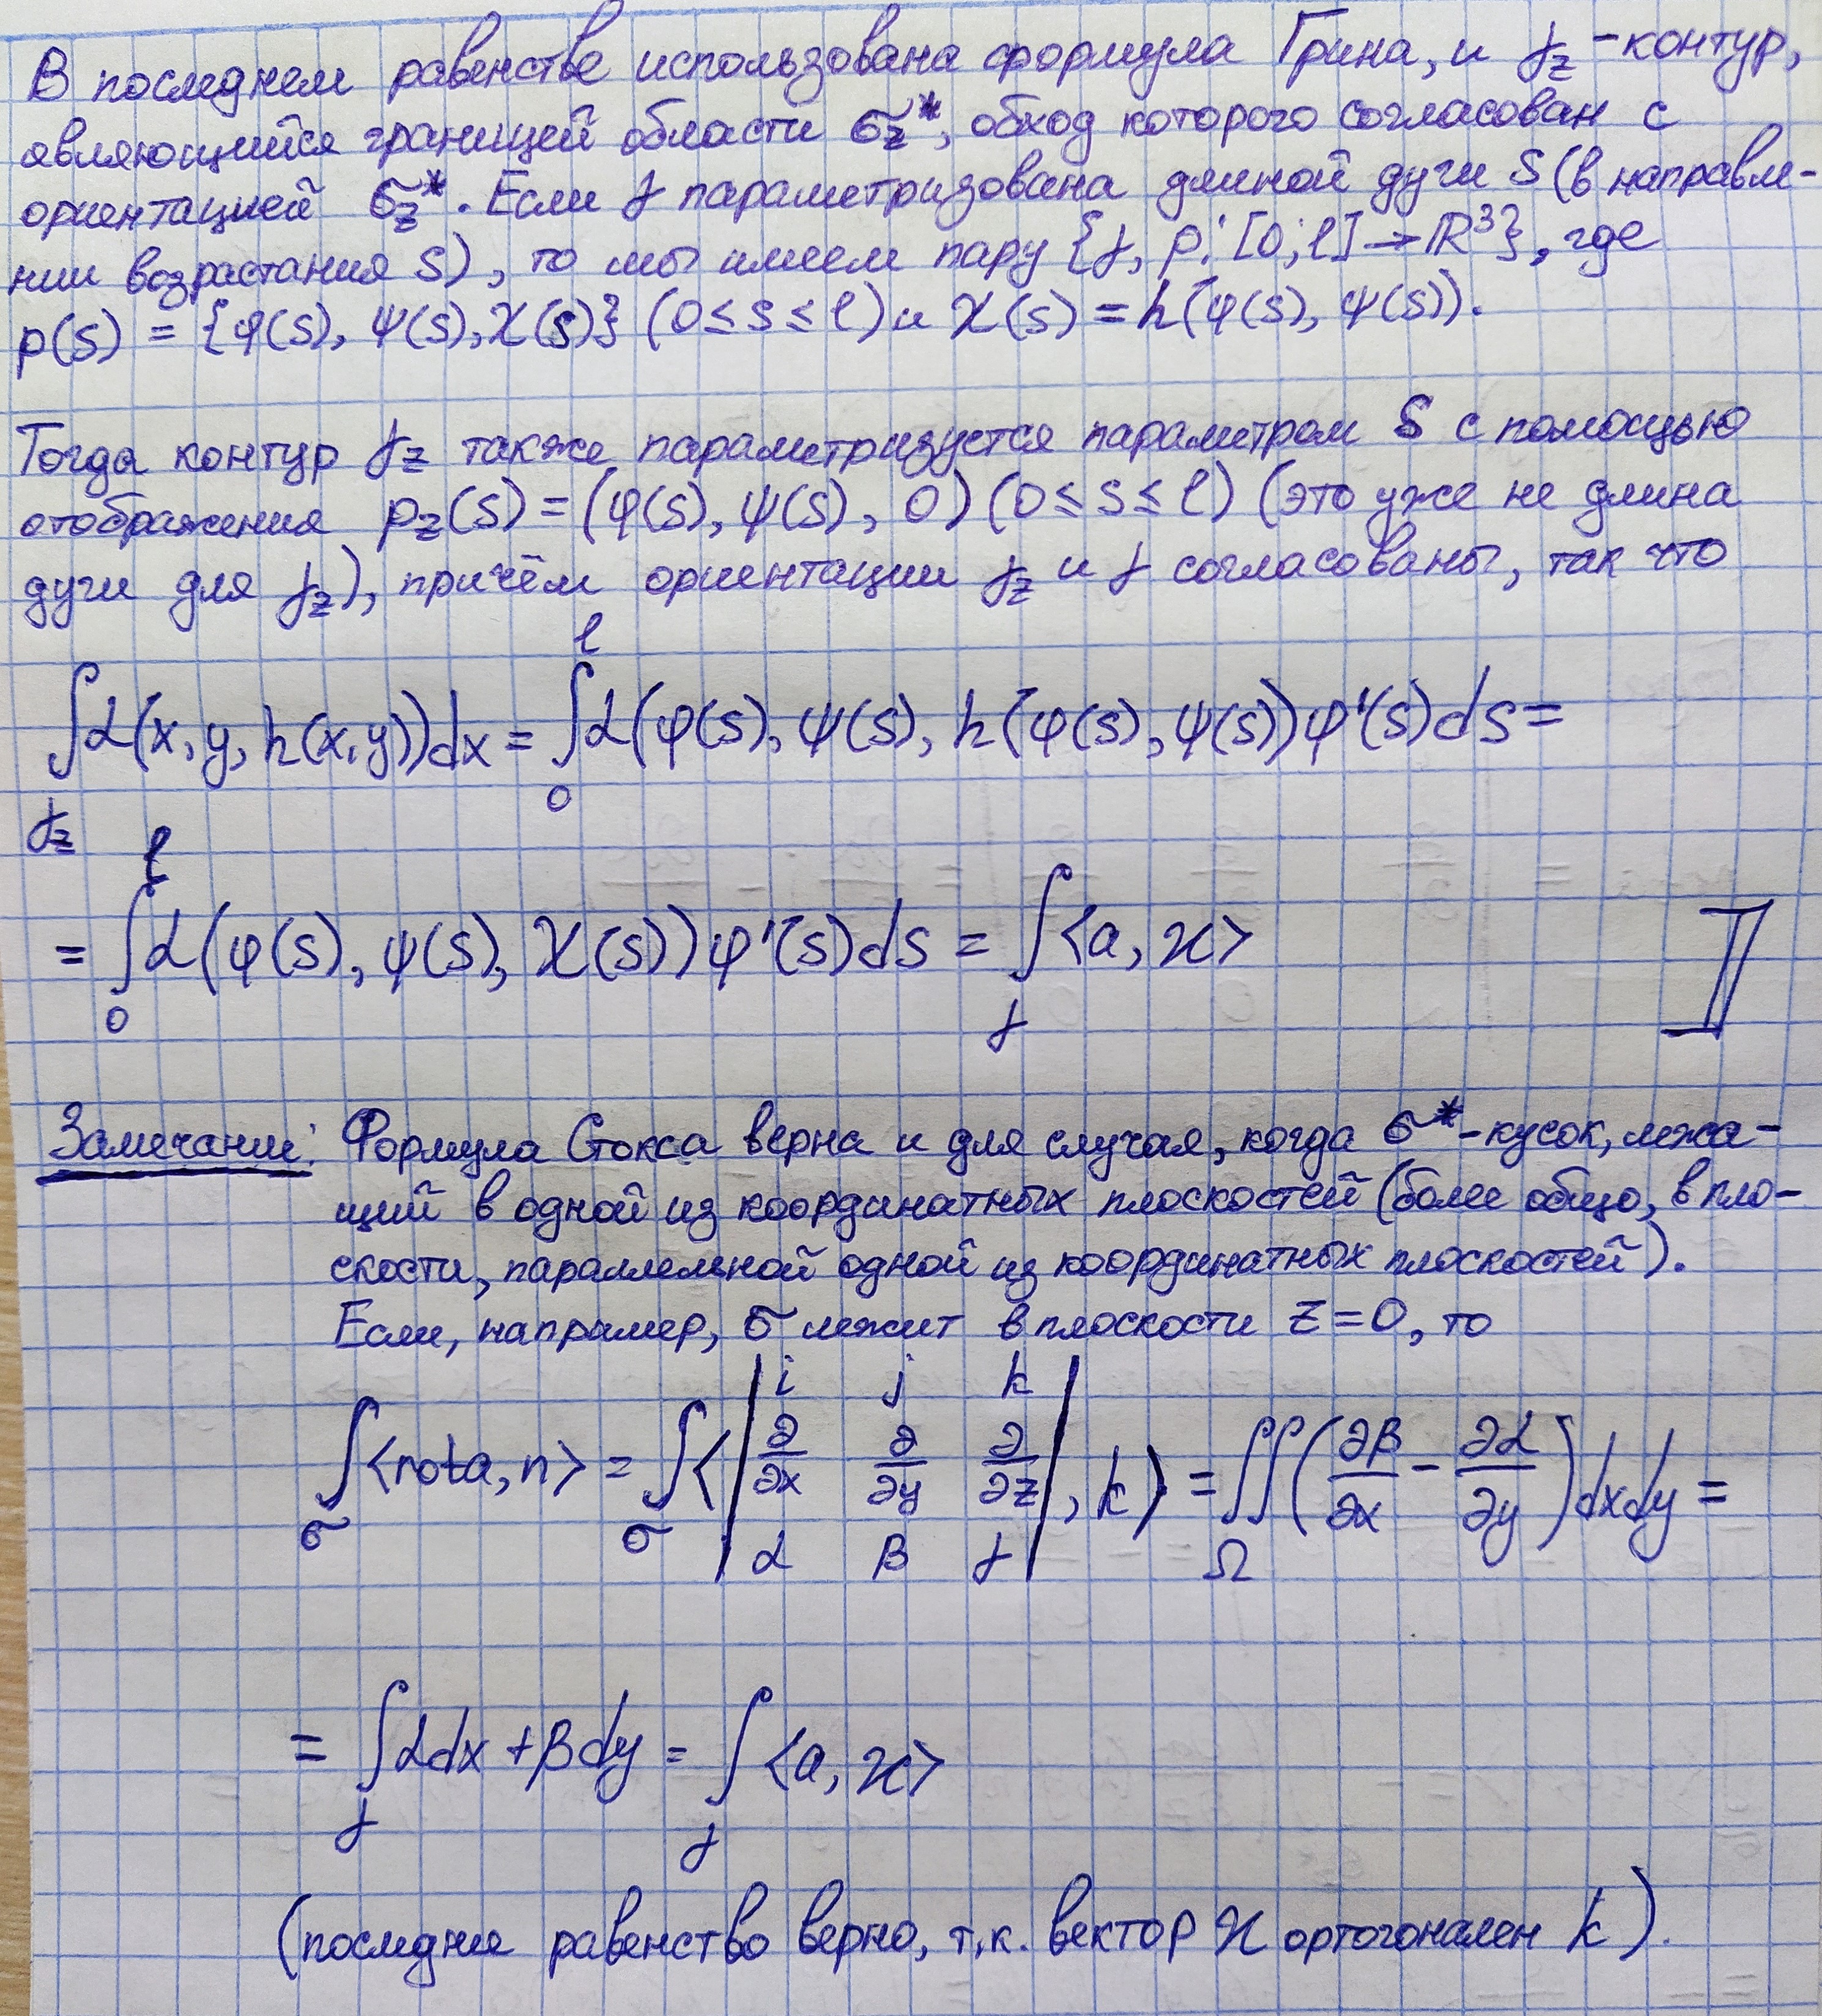 В последнем равенстве использована формула Грина, и γ_z - контур,
являющийся границей области σ_z*, обход которого согласован с
ориентацией σ_z*. Если γ параметризована длиной дуги S (в направле-
нии возрастания S), то мы имеем пару {γ, p: [0; l] → ℝ³}, где
p(s) = {φ(s), ψ(s), χ(s)} (0 ≤ s ≤ l) и χ(s) = h(φ(s), ψ(s)).
Тогда контур γ_z также параметризуется параметром S с помощью
отображения p_z(s) = (φ(s), ψ(s), 0) (0 ≤ s ≤ l) (это уже не длина
дуги для γ_z), причём ориентации γ_z и γ согласованы, так что
∫_{γ_z} α(x, y, h(x, y))dx = ∫_0^l α(φ(s), ψ(s), h(φ(s), ψ(s))φ'(s)ds =
= ∫_0^l α(φ(s), ψ(s), χ(s))φ'(s)ds = ∫_γ <a, ϰ>
Замечание: Формула Стокса верна и для случая, когда σ* - кусок, лежа-
щий в одной из координатных плоскостей (более общо, в пло-
скости, параллельной одной из координатных плоскостей).
Если, например, σ лежит в плоскости z = 0, то
∫_σ <rota, n> = ∫_σ <| i j k ; ∂/∂x ∂/∂y ∂/∂z ; α β γ |, k> = ∬_Ω (∂β/∂x - ∂α/∂y) dxdy =
= ∫_γ αdx + βdy = ∫_γ <a, ϰ>
(последнее равенство верно, т.к. вектор ϰ ортогонален k).